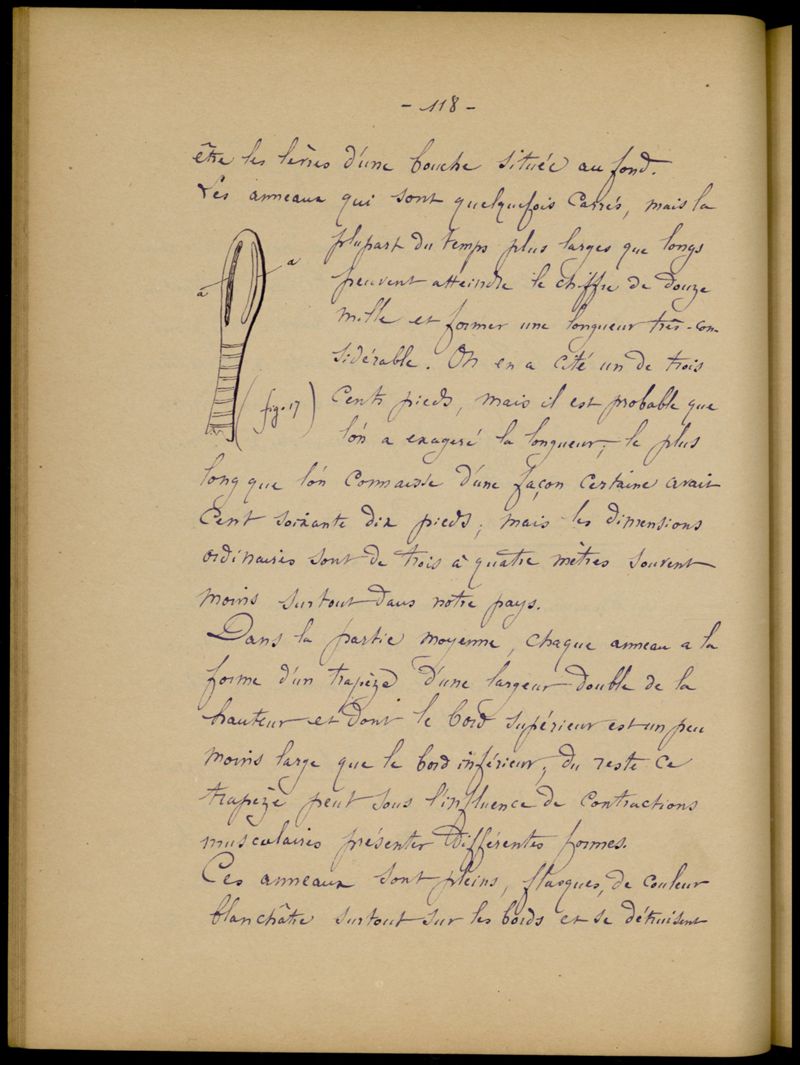 - 118 -
être les lèvres d'une bouche située au fond.
Les anneaux qui sont quelquefois carrés, mais la
plupart du temps plus larges que longs
peuvent atteindre le chiffre de douze
mille et former une longueur très-con-
sidérable. On en a cité un de trois
cents pieds, mais il est probable que
l'on a exagéré la longueur; le plus
long que l'on connaisse d'une façon certaine avait
cent soixante dix pieds; mais les dimensions
ordinaires sont de trois à quatre mètres souvent
moins surtout dans notre pays.
a
a
(fig. 17)
Dans la partie moyenne, chaque anneau a la
forme d'un trapèze d'une largeur double de la
hauteur et dont le bord supérieur est un peu
moins large que le bord inférieur; du reste ce
trapèze peut sous l'influence de contractions
musculaires présenter différentes formes.
Ces anneaux sont pleins, flasques, de couleur
blanchâtre surtout sur les bords et se détruisent